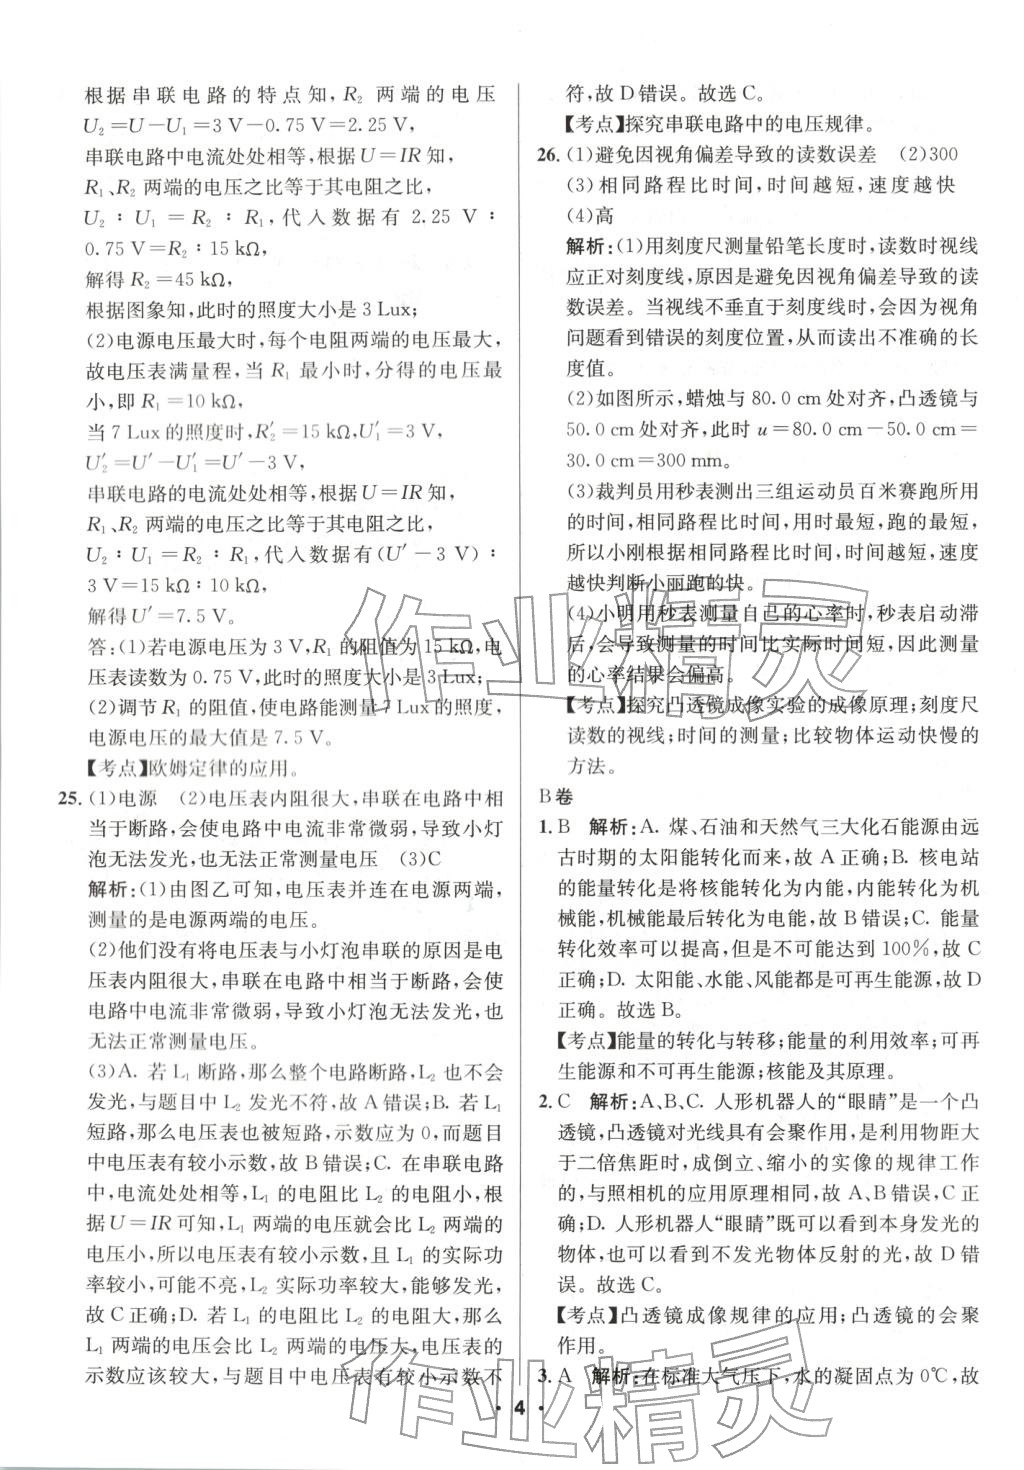 根据串联电路的特点知,R₂ 两端的电压
U₂=U-U₁=3 V-0.75 V=2.25 V,
串联电路中电流处处相等,根据 U=IR 知,
R₁、R₂ 两端的电压之比等于其电阻之比,
U₂∶U₁=R₂∶R₁,代入数据有 2.25 V∶
0.75 V=R₂∶15 kΩ,
解得 R₂=45 kΩ,
根据图象知,此时的照度大小是 3 Lux;
(2)电源电压最大时,每个电阻两端的电压最大,
故电压表满量程,当 R₁ 最小时,分得的电压最
小,即 R₁=10 kΩ,
当 7 Lux 的照度时,R₂′=15 kΩ,U₁′=3 V,
U₂′=U′-U₁′=U′-3 V,
串联电路的电流处处相等,根据 U=IR 知,
R₁、R₂ 两端的电压之比等于其电阻之比,
U₂∶U₁=R₂∶R₁,代入数据有(U′-3 V)∶
3 V=15 kΩ∶10 kΩ,
解得 U′=7.5 V。
答:(1)若电源电压为 3 V,R₁ 的阻值为 15 kΩ,电
压表读数为 0.75 V,此时的照度大小是 3 Lux;
(2)调节 R₁ 的阻值,使电路能测量 7 Lux 的照度,
电源电压的最大值是 7.5 V。
【考点】欧姆定律的应用。
25. (1)电源 (2)电压表内阻很大,串联在电路中相
当于断路,会使电路中电流非常微弱,导致小灯
泡无法发光,也无法正常测量电压 (3)C
解析:(1)由图乙可知,电压表并连在电源两端,
测量的是电源两端的电压。
(2)他们没有将电压表与小灯泡串联的原因是电
压表内阻很大,串联在电路中相当于断路,会使
电路中电流非常微弱,导致小灯泡无法发光,也
无法正常测量电压。
(3)A. 若 L₁ 断路,那么整个电路断路,L₂ 也不会
发光,与题目中 L₂ 发光不符,故 A 错误;B. 若 L₁
短路,那么电压表也被短路,示数应为 0,而题目
中电压表有较小示数,故 B 错误;C. 在串联电路
中,电流处处相等,L₁ 的电阻比 L₂ 的电阻小,根
据 U=IR 可知,L₁ 两端的电压就会比 L₂ 两端的
电压小,所以电压表有较小示数,且 L₁ 的实际功
率较小,可能不亮,L₂ 实际功率较大,能够发光,
故 C 正确;D. 若 L₁ 的电阻比 L₂ 的电阻大,那么
L₁ 两端的电压会比 L₂ 两端的电压大,电压表的
示数应该较大,与题目中电压表有较小示数不
符,故 D 错误。故选 C。
【考点】探究串联电路中的电压规律。
26. (1)避免因视角偏差导致的读数误差 (2)300
(3)相同路程比时间,时间越短,速度越快
(4)高
解析:(1)用刻度尺测量铅笔长度时,读数时视线
应正对刻度线,原因是避免因视角偏差导致的读
数误差。当视线不垂直于刻度线时,会因为视角
问题看到错误的刻度位置,从而读出不准确的长
度值。
(2)如图所示,蜡烛与 80.0 cm 处对齐,凸透镜与
50.0 cm 处对齐,此时 u=80.0 cm-50.0 cm=
30.0 cm=300 mm。
(3)裁判员用秒表测出三组运动员百米赛跑所用
的时间,相同路程比时间,用时最短,跑的最短,
所以小刚根据相同路程比时间,时间越短,速度
越快判断小丽跑的快。
(4)小明用秒表测量自己的心率时,秒表启动滞
后,会导致测量的时间比实际时间短,因此测量
的心率结果会偏高。
【考点】探究凸透镜成像实验的成像原理;刻度尺
读数的视线;时间的测量;比较物体运动快慢的
方法。
B 卷
1. B 解析:A. 煤、石油和天然气三大化石能源由远
古时期的太阳能转化而来,故 A 正确;B. 核电站
的能量转化是将核能转化为内能,内能转化为机
械能,机械能最后转化为电能,故 B 错误;C. 能量
转化效率可以提高,但是不可能达到 100%,故 C
正确;D. 太阳能、水能、风能都是可再生能源,故 D
正确。故选 B。
【考点】能量的转化与转移;能量的利用效率;可再
生能源和不可再生能源;核能及其原理。
2. C 解析:A、B、C. 人形机器人的“眼睛”是一个凸
透镜,凸透镜对光线具有会聚作用,是利用物距大
于二倍焦距时,成倒立、缩小的实像的规律工作
的,与照相机的应用原理相同,故 A、B 错误,C 正
确;D. 人形机器人“眼睛”既可以看到本身发光的
物体,也可以看到不发光物体反射的光,故 D 错
误。故选 C。
【考点】凸透镜成像规律的应用;凸透镜的会聚
作用。
3. A 解析:在标准大气压下,水的凝固点为 0℃,故
· 4 ·
作业精灵
作业精灵